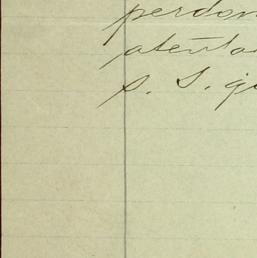 perdon
atento
s. S. q